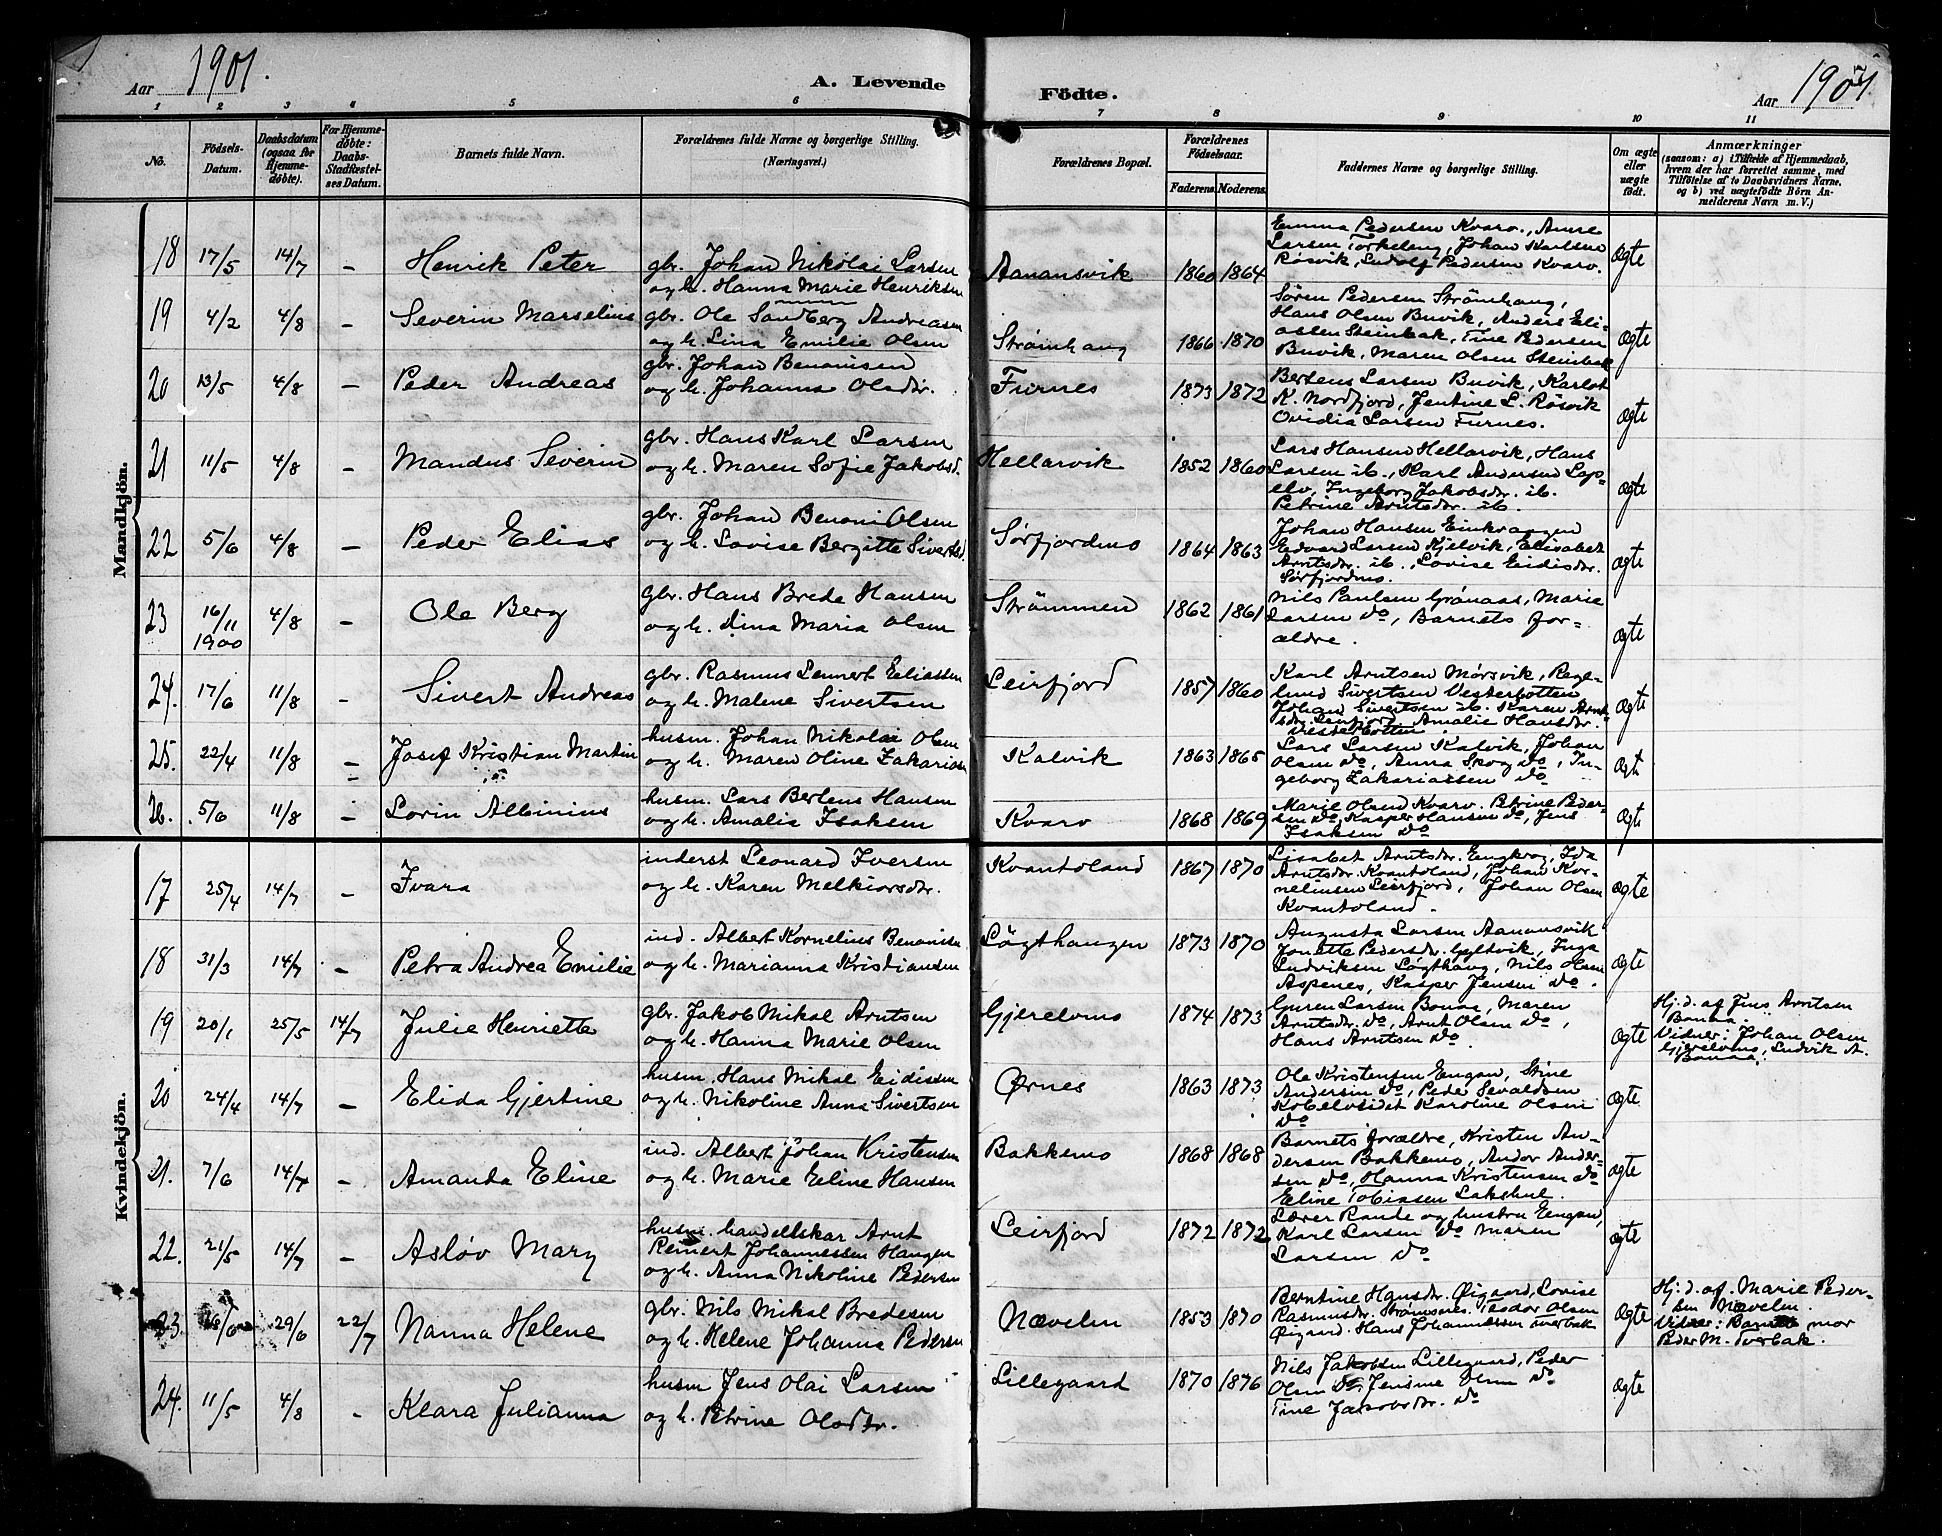 Aar 1901. A. Levende Födte. Aar 1901.
1 2 3 4 5 6 7 8 9 10 11
No.
Födsels-Datum.
Daabsdatum (ogsaa for Hjemmedøbte).
For Hjemmedøbte: Daabs-Stadfæstelses Datum.
Barnets fulde Navn.
Forældrenes fulde Navne og borgerlige Stilling.
(Næringsvei.)
Forældrenes Bopæl.
Forældrenes Födselsaar.
Faderens. Moderens.
Faddernes Navne og borgerlige Stilling.
Om ægte eller uægte födt.
Anmærkninger
(saasom: a) i Tilfælde af Hjemmedaab,
hvem der har forrettet samme, med
Tilföielse af to Daabsvidners Navne,
og b) ved uægtefödte Börn Anmelderens Navn m. V.)
Mandkjön.
18 17/5 14/7 – Henrik Peter
gbr. Johan Nikolai Larsen
og h. Hanna Marie Henriksen
Aanansvik 1860 1864
Emma Pedersen Kvarv., Anne
Larsen Torkeleng, Johan Karlsen
Røsvik, Ludolf Pedersen Kvarv.
Ægte
19 4/2 4/8 – Severin Marselius
gbr. Ole Sandberg Andreasen
og h. Lina Emilie Olsen
Strømhaug 1866 1870
Søren Pedersen Strømhaug,
Hans Olsen Buvik, Anders Eli-
assen Steinbak, Tine Pedersen
Buvik, Maren Olsen Steinbak
Ægte
20 13/5 4/8 – Peder Andreas
gbr. Johan Benonisen
og h. Johanna Olsdtr.
Furnes 1873 1872
Bertens Larsen Buvik, Karlot
K. Nordfjord, Jentine L. Røsvik
Ovidia Larsen Furnes.
Ægte
21 11/5 4/8 – Mandus Severin
gbr. Hans Karl Larsen
og h. Maren Sofie Jakobsd.
Hellarvik 1852 1860
Lars Hansen Hellarvik, Hans
Larsen ib., Karl Andersen Lap-
elv, Ingeborg Jakobsdr. ib.
Petrine Arntsdr. ib.
Ægte
22 5/6 4/8 – Peder Elias
gbr. Johan Benoni Olsen
og h. Lovise Bergitte Sivertsd.
Sørfjordmo 1864 1863
Johan Hansen Einkrangen
Edvard Larsen Kjelvik, Elisabet
Arntsdr. ib., Lovise Eidisdr.
Sørfjordmo.
Ægte
23 16/11 1900 4/8 – Ole Berg
gbr. Hans Brede Hansen
og h. Dina Maria Olsen
Strømmen 1862 1861
Nils Paulsen Grønaas, Marie
Larsen do, Barnets for-
ældre.
Ægte
24. 17/6 11/8 – Sivert Andreas
gbr. Rasmus Lennert Eliassen
og h. Malene Sivertsen
Leirfjord 1857 1860
Karl Arntsen Mørsvik, Rege-
lund Sivertsen Vesterbotten
Johan Sivertsen ib. Karen Arnt-
sdr. Leirfjord, Amalie Hansdr.
Vesterbotten.
Ægte
25. 22/4 11/8 – Josef Kristian Martin
husm. Johan Nikolai Olsen
og h. Maren Oline Zakariasen
Kalvik 1863 1865
Lars Larsen Kalvik, Johan
Olsen do, Anna Skog do, In-
geborg Zakariassen do
Ægt
26. 5/6 11/8 – Lorin Albinius
husm. Lars Bertens Hansen
og h. Amalia Isaksen
Kvarv 1868 1869
Marie Olsen Kvarv. Petrine Peder-
sen do, Kasper Hansen do, Jens
Isaksen do
Ægte
Kvindekjön.
17 25/4 14/7 – Ivara
inderst Leonard Iversen
og h. Karen Melkiorsdr.
Kvantoland 1867 1870
Lisabet Arntsdr. Engkrog, Ida
Arntsdr. Kvantoland, Johan Kor-
neliussen Leirfjord, Johan Olsen
Kvantoland.
Ægte
18 31/3 14/7 – Petra Andrea Emilie
ind. Albert Kornelius Benonisen
og h. Marianna Kristiansen
Løgthaugen 1873 1870
Augusta Larsen Aanansvik
Jonette Pedersdr. Gyltvik, Inga
Ludviksen Løgthaug, Nils Olsen
Aspenes, Kasper Jensen do.
Ægte
19 20/1 25/5 14/7 Julie Henriette
gbr. Jakob Mikal Arntsen
og h. Hanna Marie Olsen
Gjerelvmo 1874 1873
Guren Larsen Bonaa, Maren
Arntsdr. do, Arnt Olsen do,
Hans Arntsen do
Ægte
Hj. d. af Jens Arntsen
Bonaa.
Vidner: Johan Olsen
Gjerelvmo, Ludvik A.
Bonaa.
20 24/4 14/7 – Elida Gjertine
husm. Hans Mikal Eidissen
og h. Nikoline Anna Sivertsen
Ørnes 1863 1873
Ole Kristensen Engan, Stine
Andersen do, Peder Sevaldsen
Kobelvsidet Karoline Olsen
do
Ægte
21. 7/6 14/7 – Amanda Eline
ind. Albert Johan Kristensen
og h. Marie Eline Hansen
Bakkemo 1868 1868
Barnets forældre, Kristen An-
dersen Bakkemo, Andor Ander-
sen do, Hanna Kristensen do
Eline Tobiasen Lakshul.
Ægte
22. 21/5 14/7 – Asløv Mary
husm. handelskar Arnt
Reinert Johannessen Haugen
og h. Anna Nikoline Pedersen
Leirfjord 1872 1872
Lærer Rande og hustru Engan,
Karl Larsen do Maren
Larsen do
Ægte
23. 29/6 22/7 Nanna Helene
gbr. Nils Mikal Bredesen
og h. Helene Johanna Pedersen
Nævelm 1853 1870
Berntine Hansdr. Øigaard, Lovise
Rasmusdr. Strømsnes. Teodor Olsen
Øigaard. Hans Johannessen Tverbak
Ægte
Hj. d. af. Marie Peder-
sen Nævelm.
Vidner: Barnets mor
Peder M. Tverbak.
24. 11/5 4/8 – Klara Julianna
husm Jens Olai Larsen
og h. Petrine Olsdtr.
Lillegaard 1870 1876
Nils Jakobsen Lillegaard, Peder
Olsen do, Jensine Olsen do
Tine Jakobsdr. do
Ægte